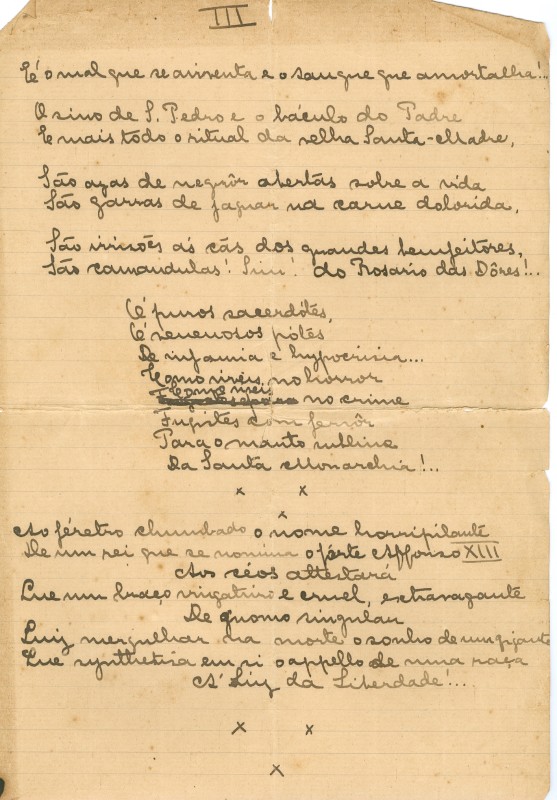 III
E é o mal que se avventa e o sangue que amortalha!..
O sino de S. Pedro e o báculo do Padre
E mais todo o ritual da velha Santa-Madre,
São azas de negrôr abertas sobre a vida
São garras de jaguar na carne dolorida,
São irrisões ás cãs dos grandes bemfeitores,
São camandulas! Sim! do Rosario das Dôres!..
E' puros sacerdótes,
E' venenosos pótes
De infamia e hypocrisia...
E como viveis no horror
E como no crime
Fugistes com fervôr
Para o manto sublime
Da Santa Monarchia!..
x x
x
Ao féretro chumbado o nome horripilante
De um rei que se nomina o forte Affonso XIII
Aos céos attestará
Que um braço vingativo e cruel, extravagante
De gnomo singular
Quiz mergulhar na morte o sonho de um gigante
Que synthetisa em si o appello de uma raça
A' Luz da Liberdade!...
x x
x